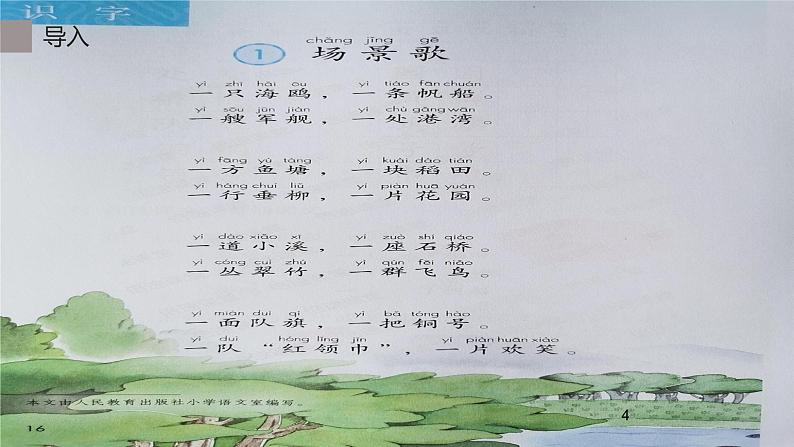 识 字
导入
chǎng jǐng gē
1 场 景 歌
yì zhī hǎi ōu yì tiáo fān chuán
一 只 海 鸥 ， 一 条 帆 船 。
yì sōu jūn jiàn yí chù gǎng wān
一 艘 军 舰 ， 一 处 港 湾 。
yì fāng yú táng yí kuài dào tián
一 方 鱼 塘 ， 一 块 稻 田 。
yì háng chuí liǔ yí piàn huā yuán
一 行 垂 柳 ， 一 片 花 园 。
yí dào xiǎo xī yí zuò shí qiáo
一 道 小 溪 ， 一 座 石 桥 。
yì cóng cuì zhú yì qún fēi niǎo
一 丛 翠 竹 ， 一 群 飞 鸟 。
yí miàn duì qí yì bǎ tóng hào
一 面 队 旗 ， 一 把 铜 号 。
yí duì hóng lǐng jīn yí piàn huān xiào
一 队 “ 红 领 巾 ” ， 一 片 欢 笑 。
本文由人民教育出版社小学语文室编写。
16
4